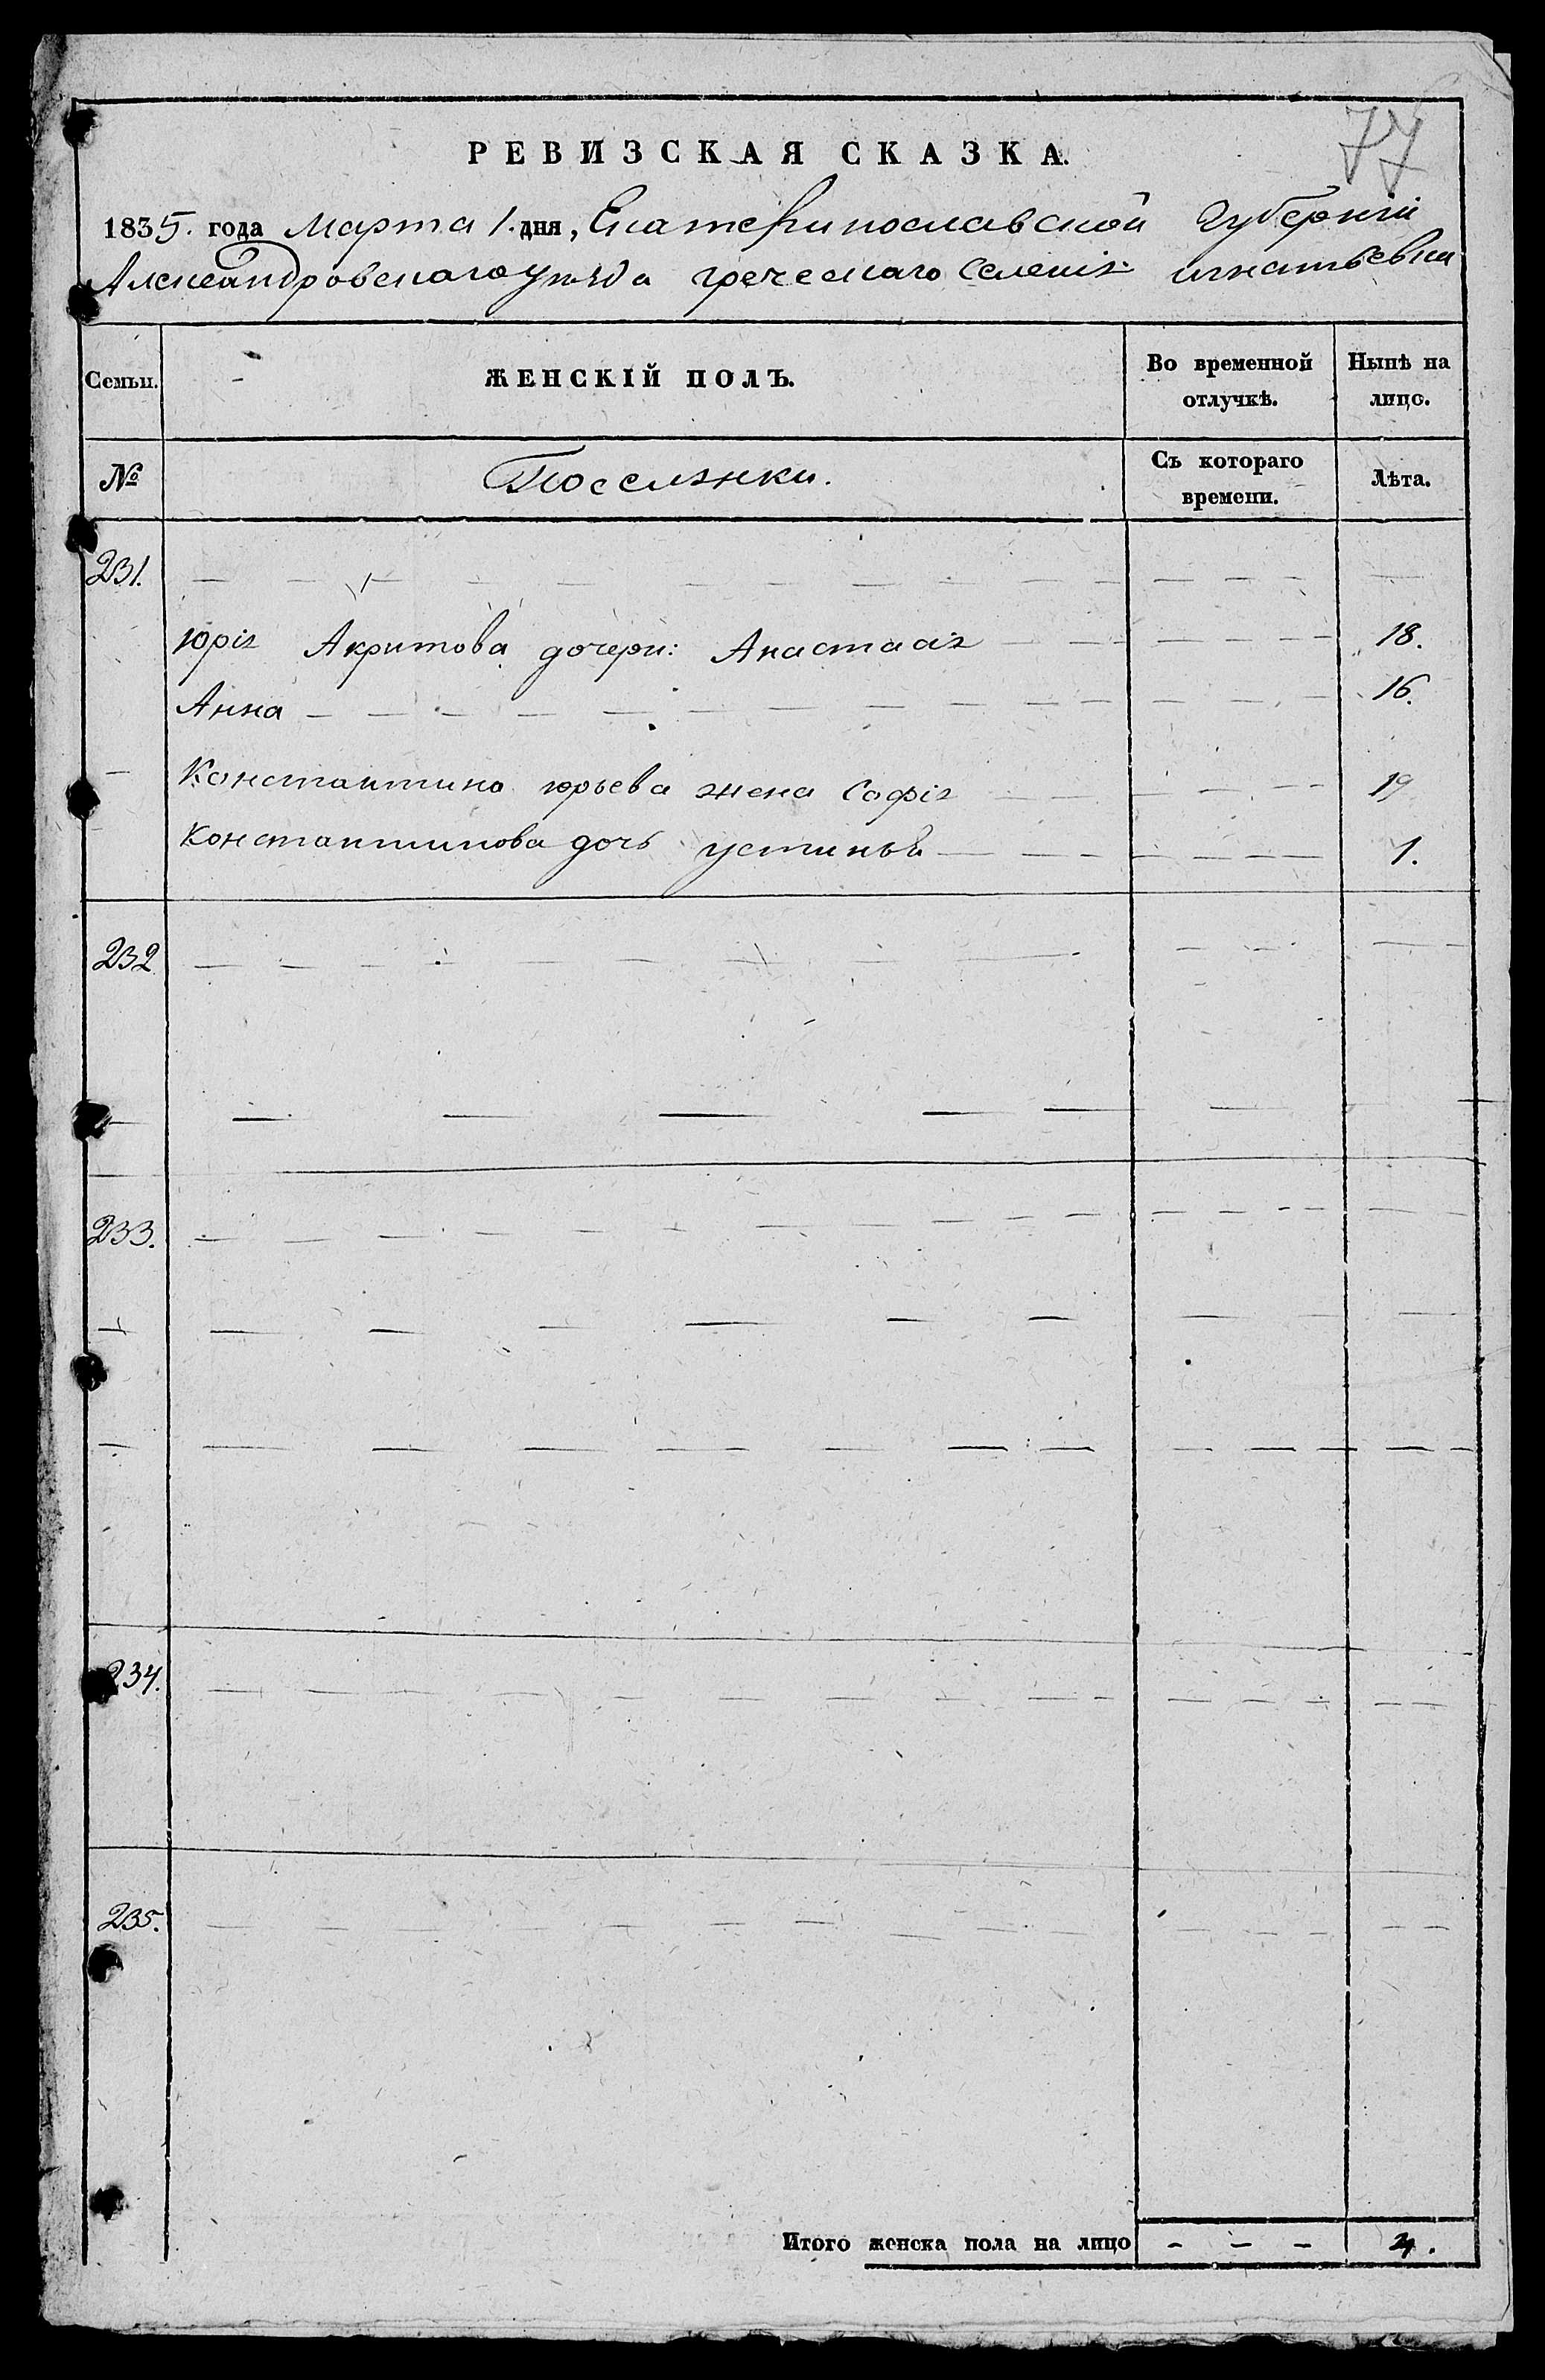 77
РЕВИЗСКАЯ СКАЗКА.
1835. года Марта 1. дня, Екатеринославской Губернiи
Александровскаго уѣзда греческаго Селенiя игнатьевки
Семьи. ЖЕНСКIЙ ПОЛЪ. Во временной отлучкѣ. Нынѣ на лицо.
№ Поселянки. Съ котораго времени. Лѣта.
231.
юрiя Акритова дочери: Анастасiя 18.
Анна 16.
Константина юрьева жена Софiя 19
Константинова дочь устинья 1.
232
233.
234.
235.
Итого женска пола на лицо - - - 4.